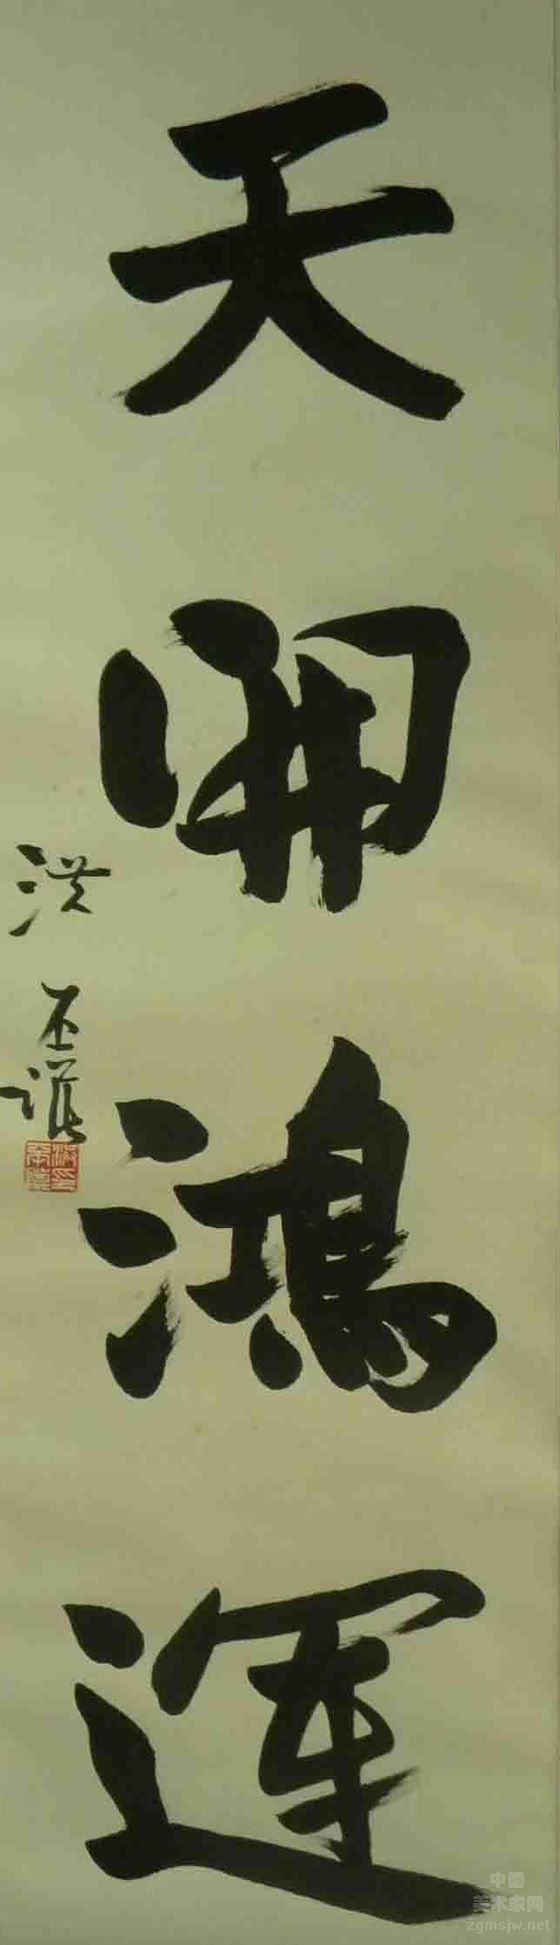 天開鴻運
洪丕謨
中国
美术家网
zgmsjw.net